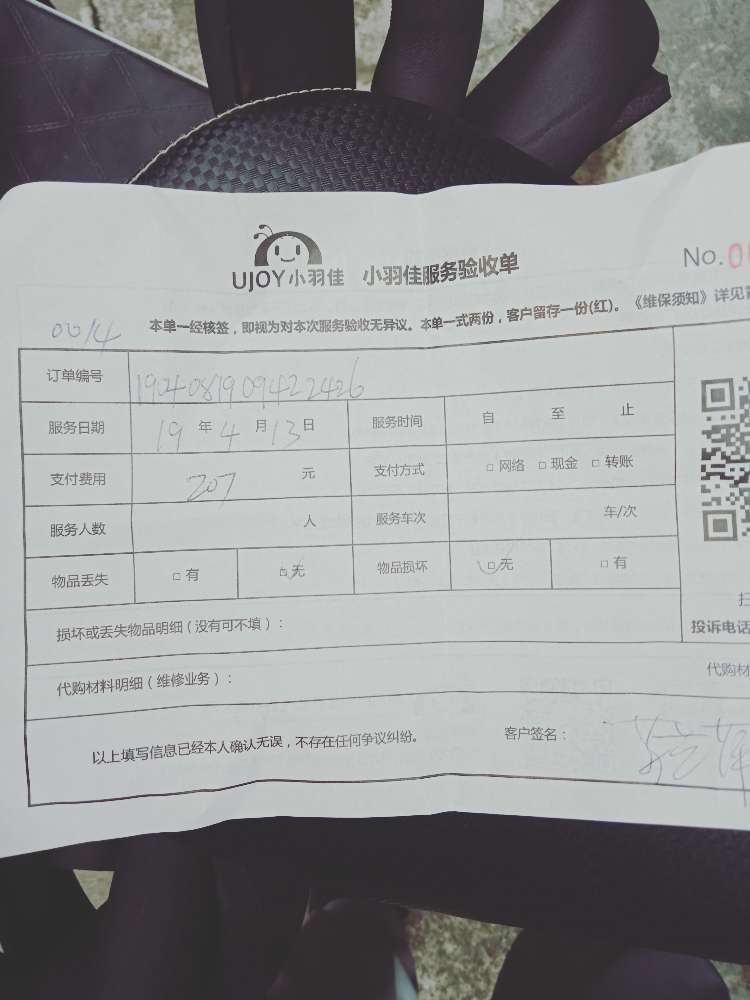 UJOY小羽佳 小羽佳服务验收单
No.0
本单一经核签，即视为对本次服务验收无异议。本单一式两份，客户留存一份(红)。《维保须知》详见
0014
订单编号 190408190942242426
服务日期 19 年 4 月 13 日 服务时间 自 至 止
支付费用 207 元 支付方式 □ 网络 □ 现金 □ 转账
服务人数 人 服务车次 车/次
物品丢失 □ 有 □ 无 物品损坏 □ 无 □ 有
损坏或丢失物品明细（没有可不填）：
投诉电话
代购材料明细（维修业务）：
代购材
以上填写信息已经本人确认无误，不存在任何争议纠纷。 客户签名：